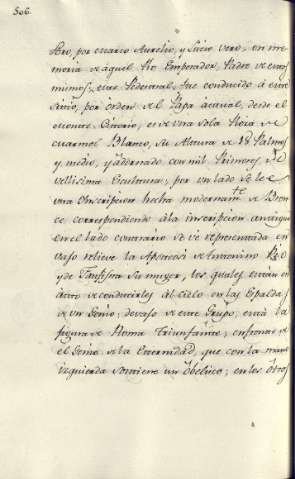 506.
Pio, por Marco Aurelio, y Lucio vero, en me
moria de aquel Pio Emperador, Padre de estos
mismos; este Pedestal, fue conducido á este
sitio, por orden del Papa actual, desde el
Monte Citorio, es de una sola Pieza de
marmol Blanco, su Altura de 18 Palmos
y medio, y adornado con mil Primores de
vellisima Escultura; por un lado se le e
una Obscripcion hecha modernam.te de Bron
ce correspondiendo á la inscripcion antigua
en el lado contrario se ve representada en
vaso relieve la Apoteosi de Antonino Pio
y de Faustina su muger, los quales están en
acto de conducirles al cielo en las Espaldas
de un Genio; devaxo de este Grupo, está la
figura de Roma Triunfante, enfrente de
el Genio de la Eternidad, que con la mano
izquierda sostiene un Obelisco; en los otros